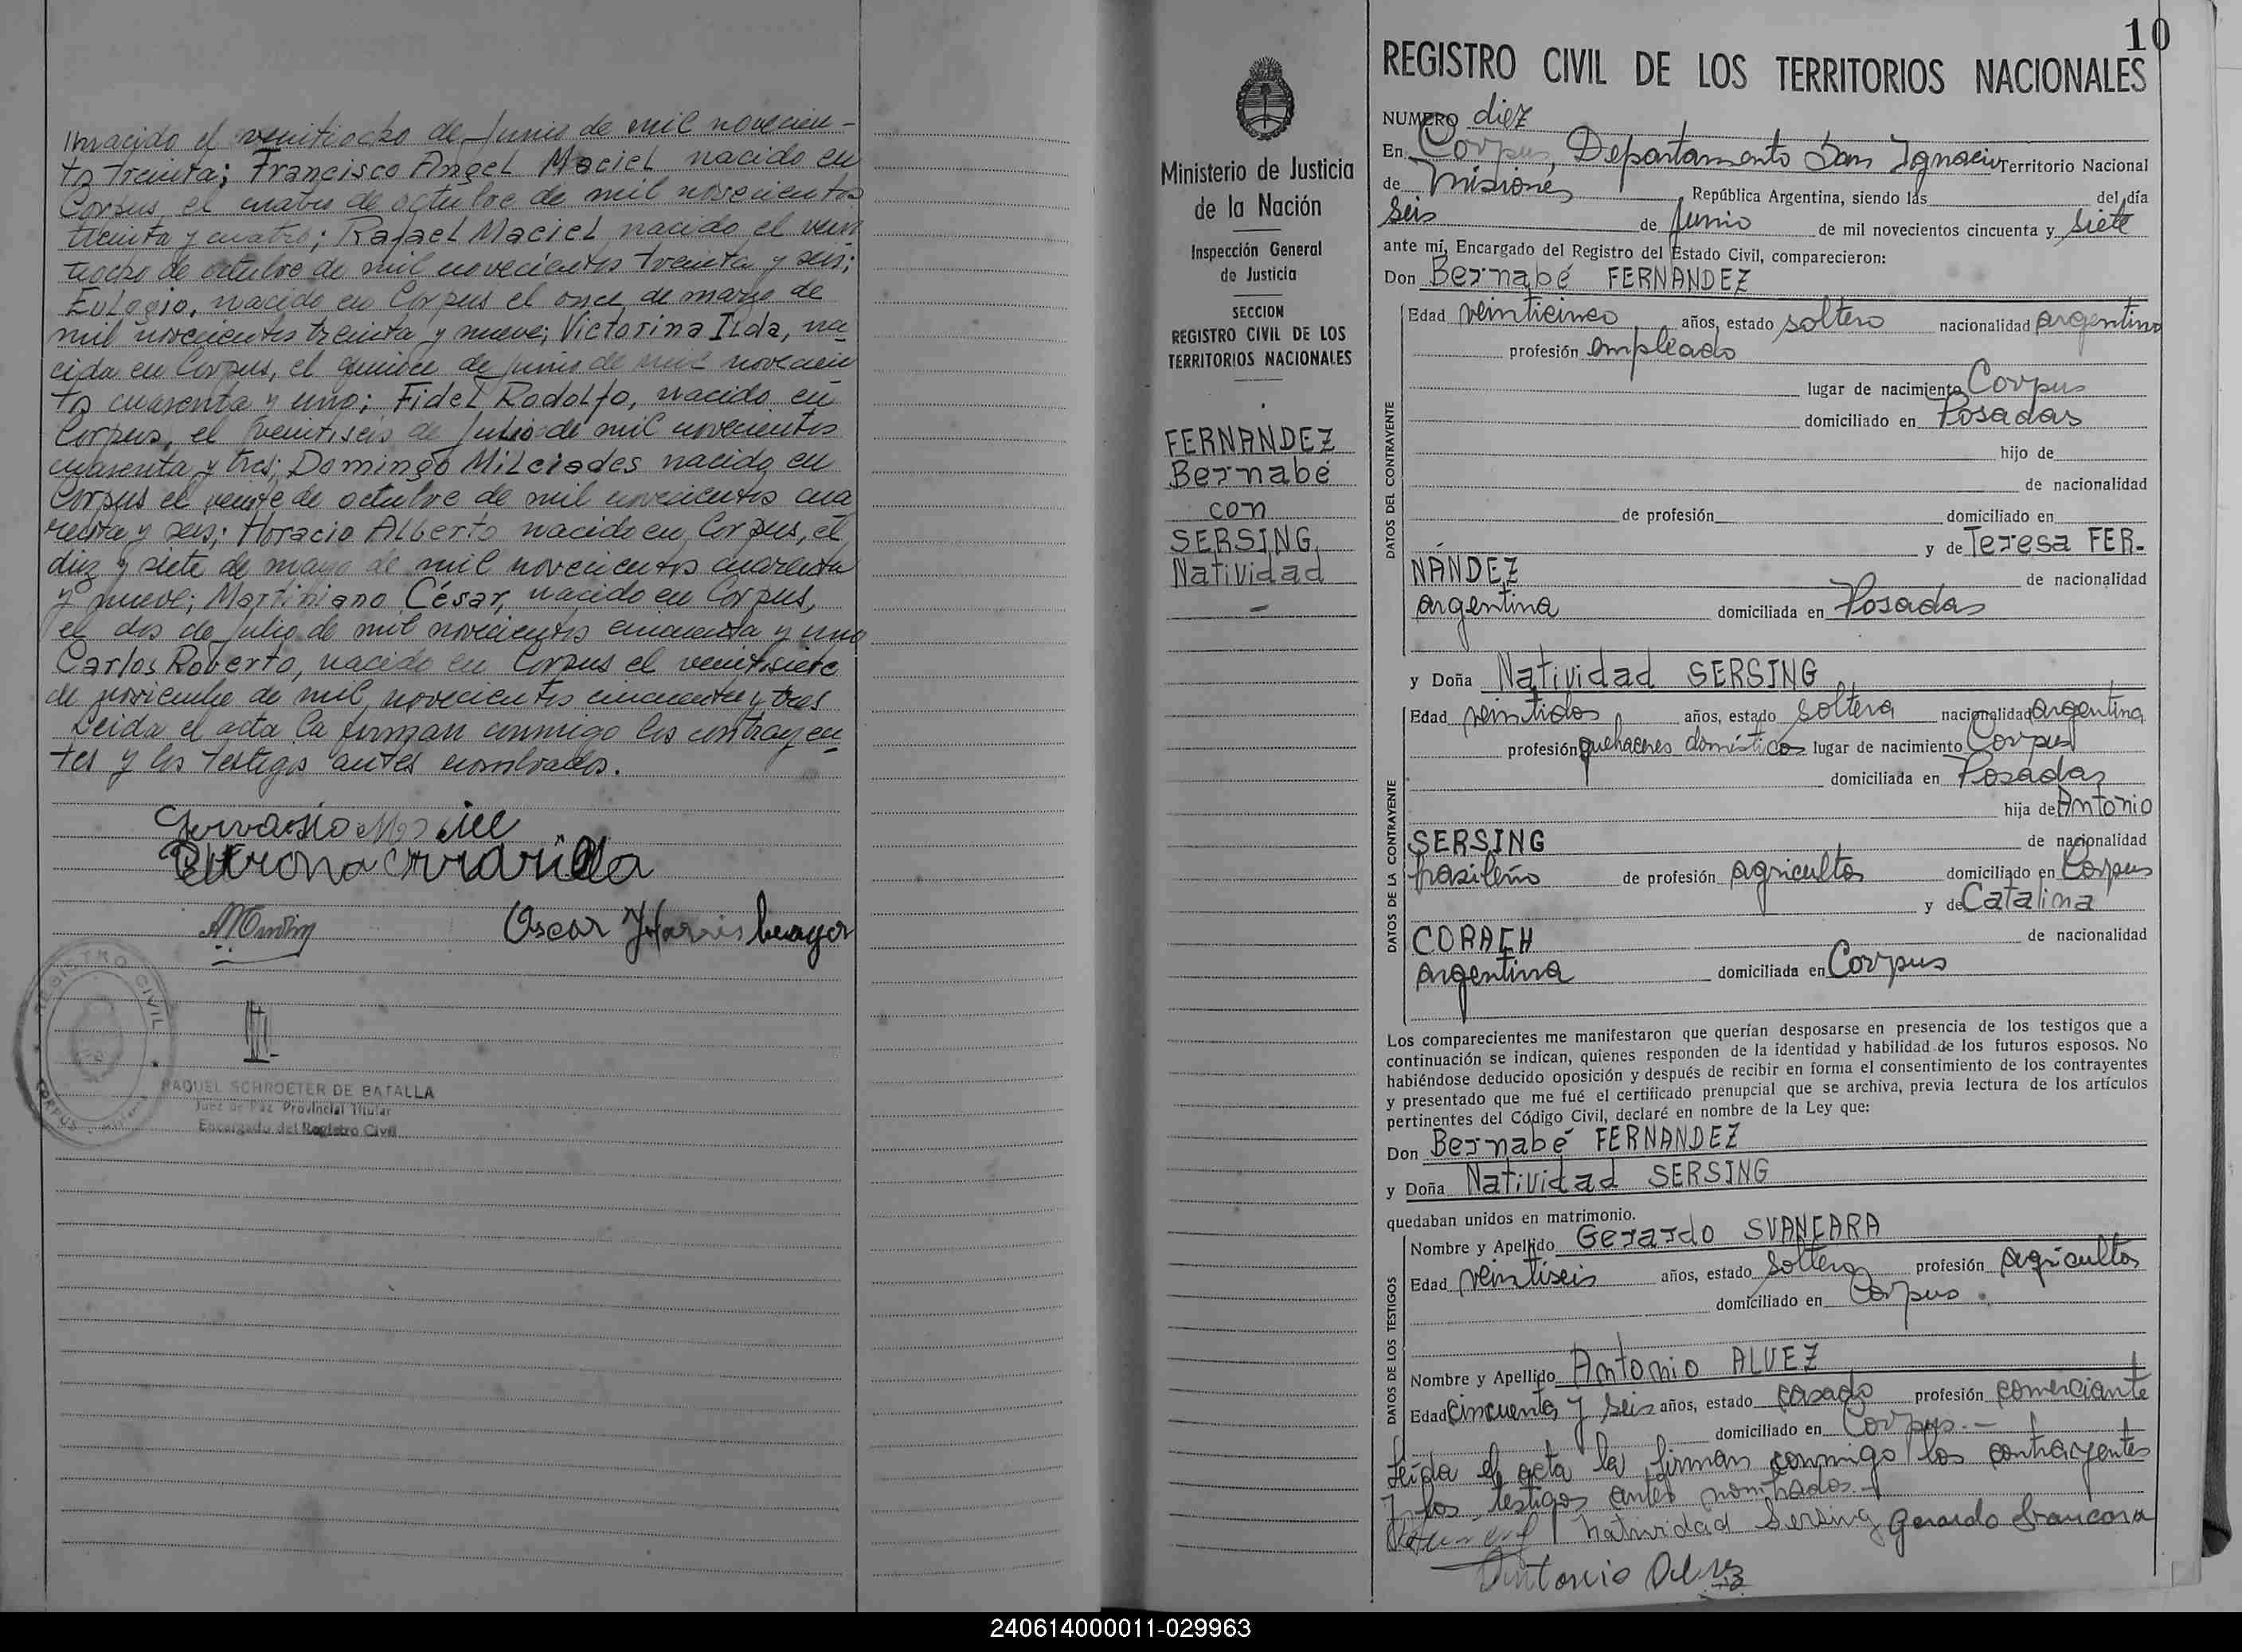 nacido el veintiocho de Junio de mil novecien-
to treinta; Francisco Angel Maciel nacido en
Corpus, el cuatro de octubre de mil novecientos
treinta y cuatro; Rafael Maciel, nacido el vein
tiocho de octubre de mil novecientos treinta y seis;
Eulogio, nacido en Corpus el once de marzo de
mil novecientos treinta y nueve; Victorina Ilda, na
cida en Corpus, el quince de junio de mil novecien
to cuarenta y uno; Fidel Rodolfo, nacido en
Corpus, el veintiseis de Julio de mil novecientos
cuarenta y tres; Domingo Milciades nacido en
Corpus el veinte de octubre de mil novecientos cua
renta y seis; Horacio Alberto nacido en Corpus, el
diez y siete de mayo de mil novecientos cuarenta
y nueve; Martiniano César, nacido en Corpus,
el dos de Julio de mil novecientos cincuenta y uno
Carlos Roberto, nacido en Corpus el veintisiete
de noviembre de mil novecientos cincuenta y tres
Leida el acta la firman conmigo los contrayen
tes y los testigos antes nombrados.
Gervasio Maciel
Petrona
Oscar Harrisberger
REGISTRO CIVIL
CORPUS
RAQUEL SCHROETER DE BATALLA
Juez de Paz Provincial Titular
Encargado del Registro Civil
Ministerio de Justicia
de la Nación
Inspección General
de Justicia
SECCION
REGISTRO CIVIL DE LOS
TERRITORIOS NACIONALES
FERNANDEZ
Bernabé
con
SERSING
Natividad
10
REGISTRO CIVIL DE LOS TERRITORIOS NACIONALES
NUMERO diez
En Corpus, Departamento San Ignacio Territorio Nacional
de Misiones República Argentina, siendo las del día
seis de Junio de mil novecientos cincuenta y siete
ante mí, Encargado del Registro del Estado Civil, comparecieron:
Don Bernabé FERNANDEZ
DATOS DEL CONTRAYENTE
Edad veinticinco años, estado soltero nacionalidad argentino
profesión empleado
lugar de nacimiento Corpus
domiciliado en Posadas
hijo de
de nacionalidad
de profesión domiciliado en
y de Teresa FER-
NANDEZ de nacionalidad
argentina domiciliada en Posadas
y Doña Natividad SERSING
DATOS DE LA CONTRAYENTE
Edad veintidos años, estado soltera nacionalidad argentina
profesión quehaceres domésticos lugar de nacimiento Corpus
domiciliada en Posadas
hija de Antonio
SERSING de nacionalidad
brasileño de profesión agricultor domiciliado en Corpus
y de Catalina
CORACH de nacionalidad
argentina domiciliada en Corpus
Los comparecientes me manifestaron que querían desposarse en presencia de los testigos que a
continuación se indican, quienes responden de la identidad y habilidad de los futuros esposos. No
habiéndose deducido oposición y después de recibir en forma el consentimiento de los contrayentes
y presentado que me fué el certificado prenupcial que se archiva, previa lectura de los artículos
pertinentes del Código Civil, declaré en nombre de la Ley que:
Don Bernabé FERNANDEZ
y Doña Natividad SERSING
quedaban unidos en matrimonio.
DATOS DE LOS TESTIGOS
Nombre y Apellido Gerardo SVANCARA
Edad veintiseis años, estado soltero profesión agricultor
domiciliado en Corpus.
Nombre y Apellido Antonio ALVEZ
Edad cincuenta y seis años, estado casado profesión comerciante
domiciliado en Corpus.-
Leída el acta la firman conmigo los contrayentes
y los testigos antes nombrados.-
Natividad Sersing Gerardo Svancara
Antonio Alvez
240614000011-029963